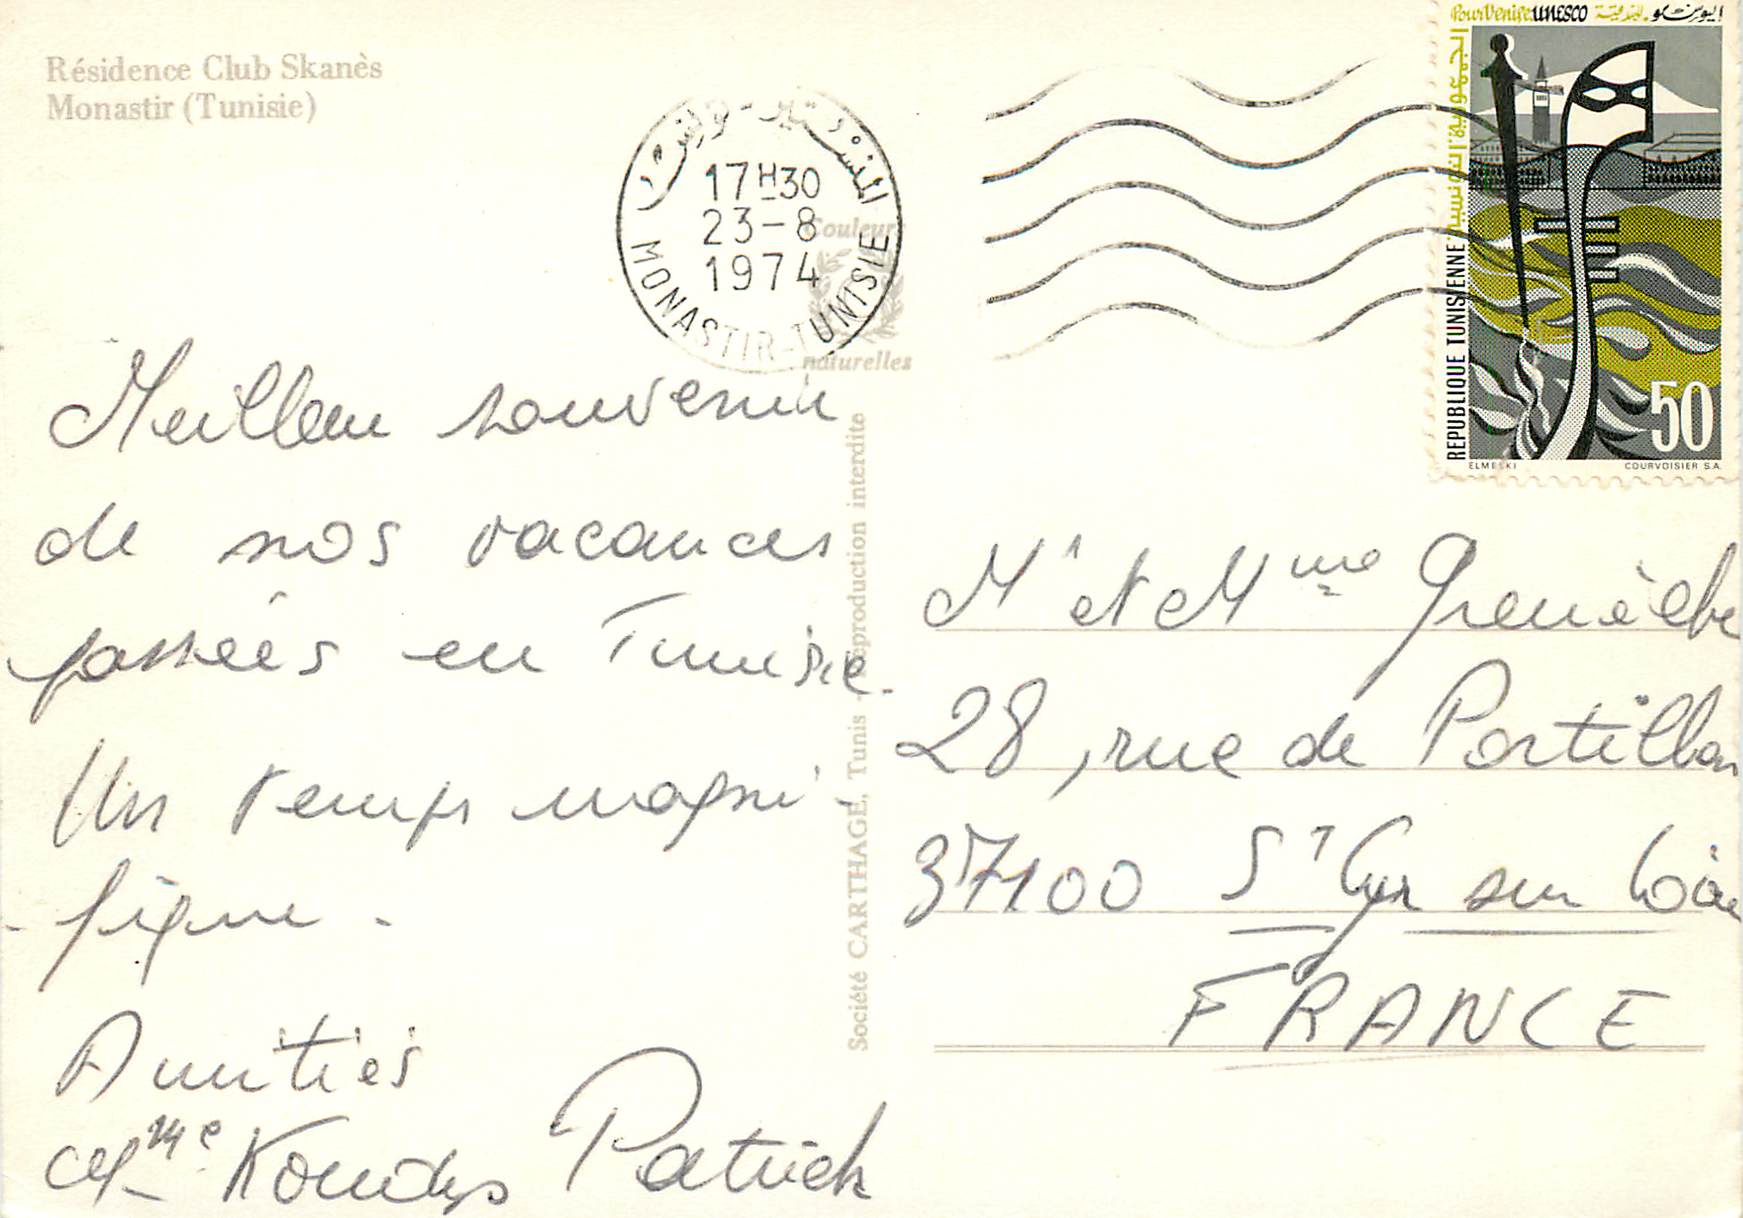 Résidence Club Skanès
Monastir (Tunisie)
المنستير - تونس
17H30
23-8
1974
MONASTIR-TUNISIE
Couleurs
naturelles
Pour Venise UNESCO
الجمهورية التونسية
REPUBLIQUE TUNISIENNE
50
ELMEKKI
COURVOISIER S.A.
Meilleur souvenir
de nos vacances
passées en Tunisie.
Un temps magni-
-fique.
Amitiés
Patrick
Société CARTHAGE, Tunis - Reproduction interdite
Mr et Mme
28, rue de Portillon
37100 St Cyr sur Loire
FRANCE